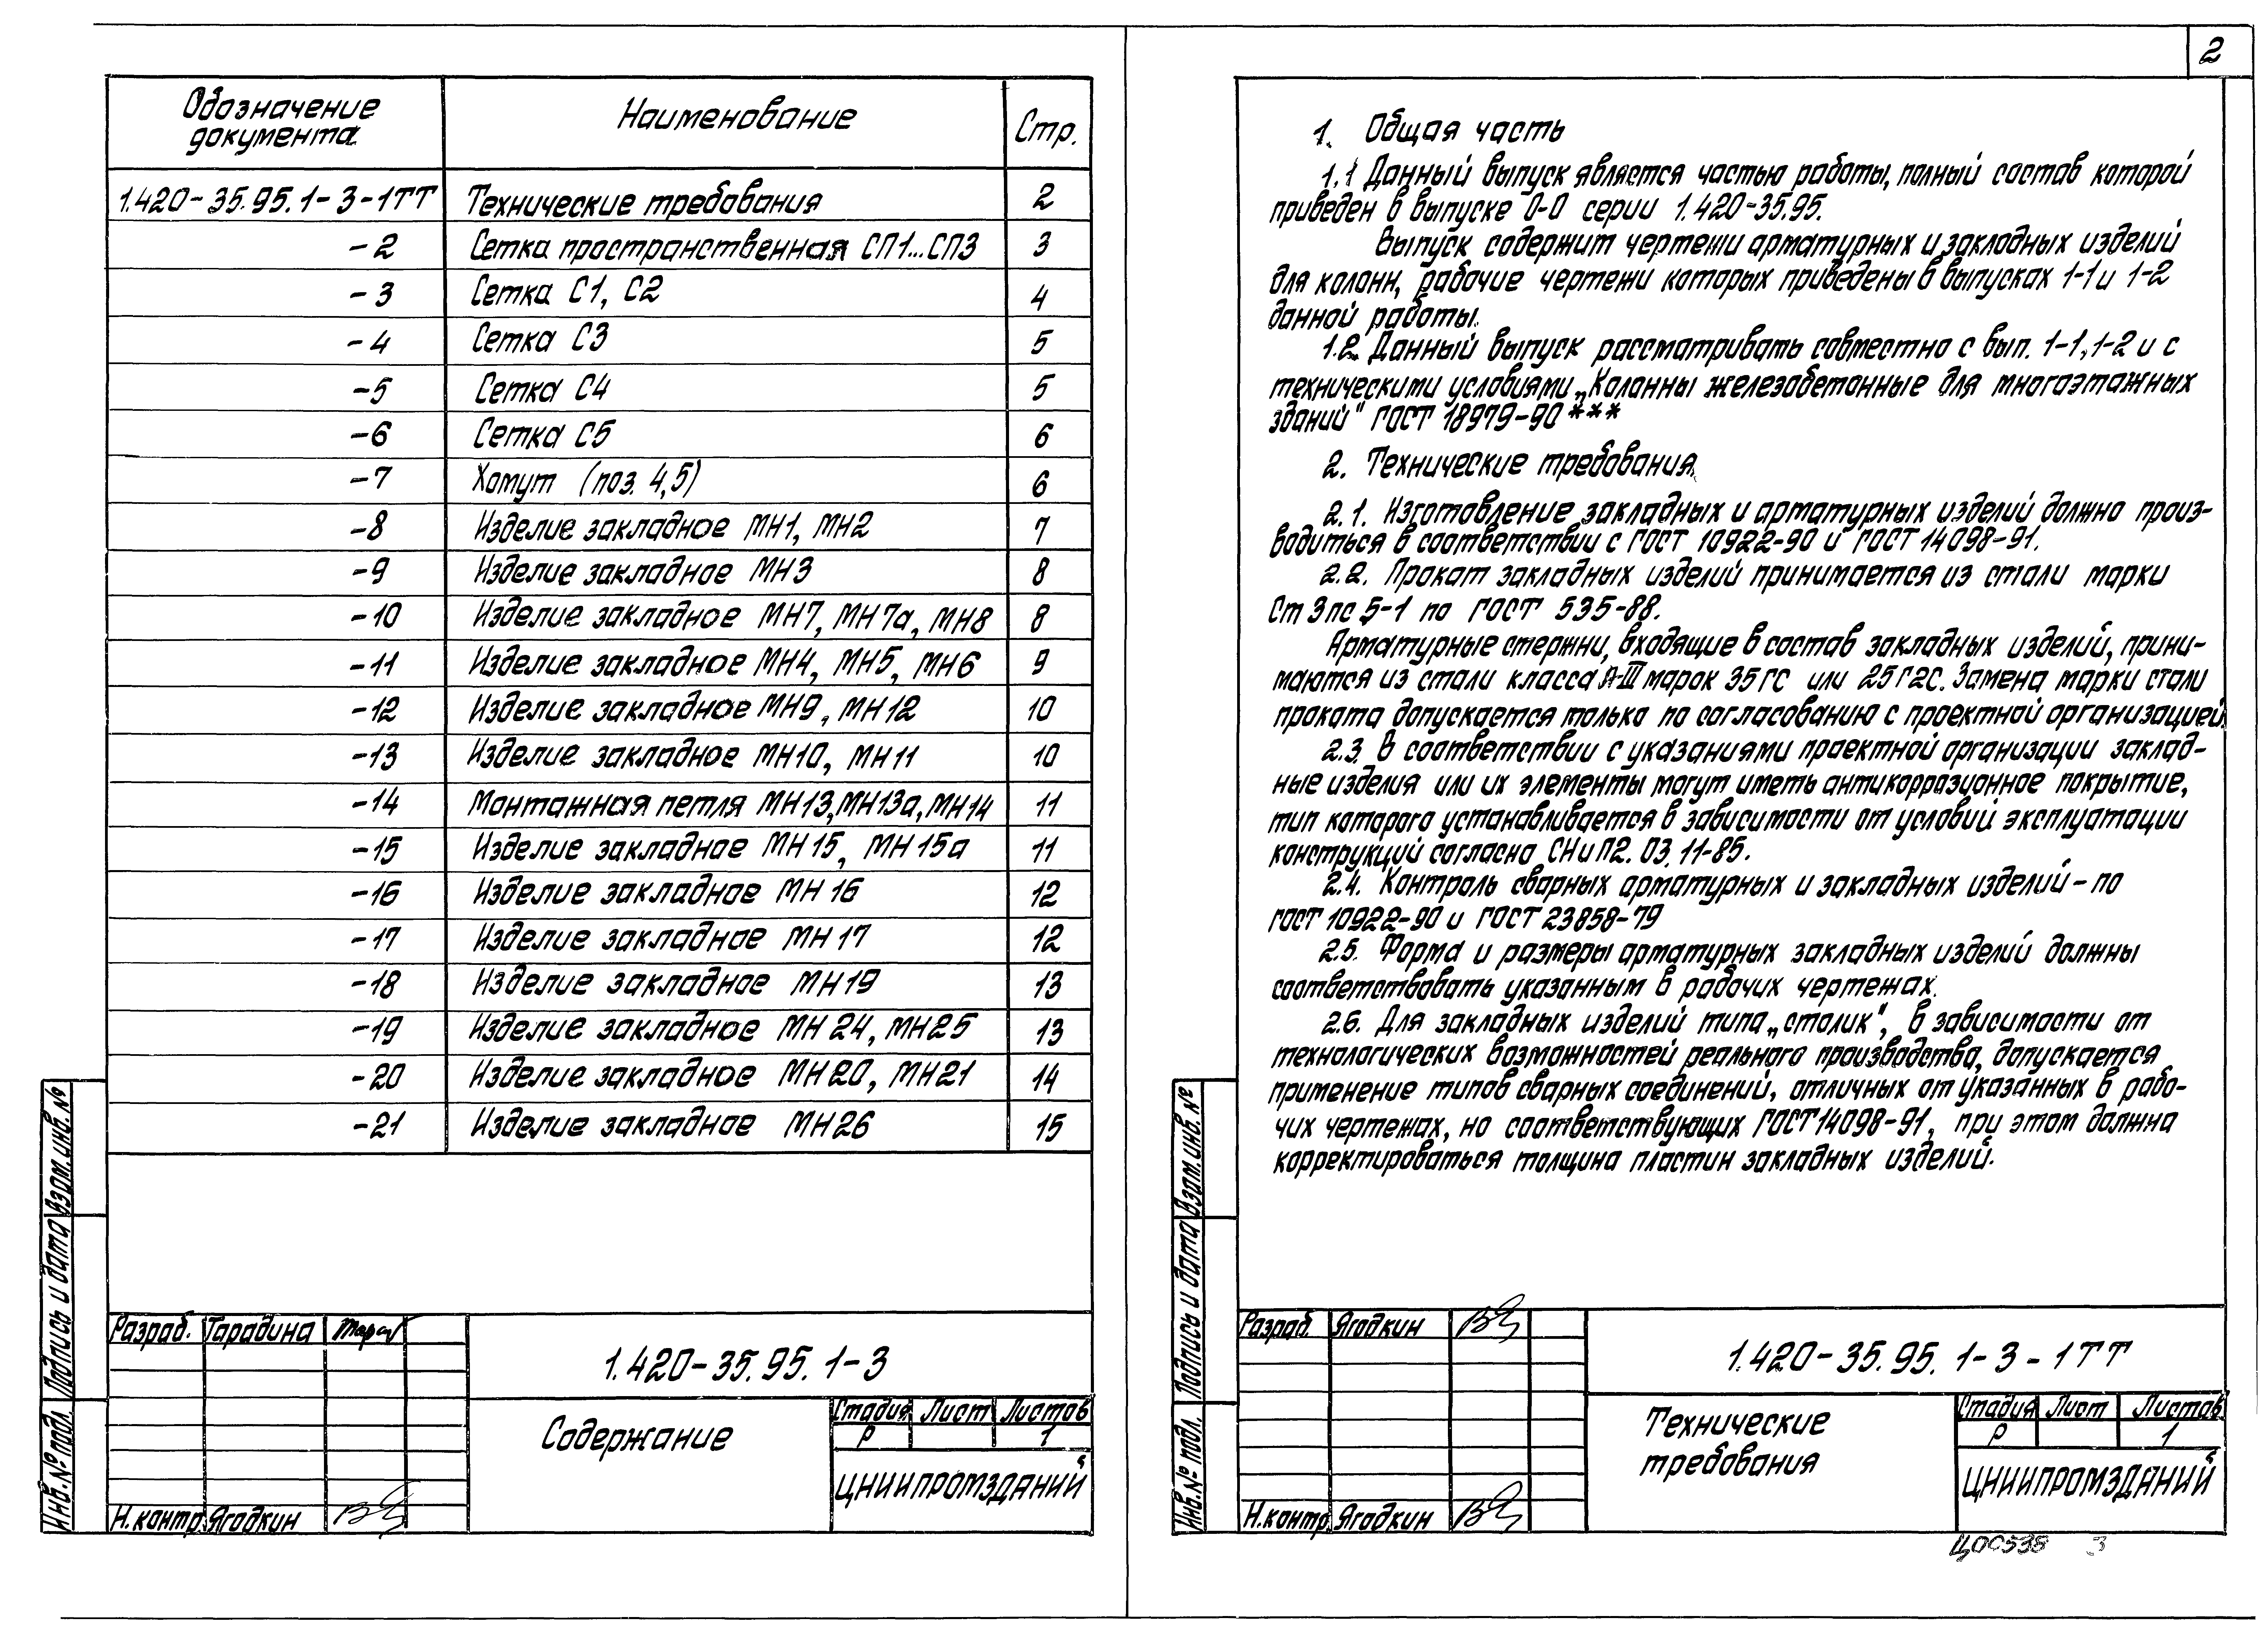 Обозначение документа Наименование Стр.
1.420-35.95.1-3-1ТТ Технические требования 2
-2 Сетка пространственная СП1...СП3 3
-3 Сетка С1, С2 4
-4 Сетка С3 5
-5 Сетка С4 5
-6 Сетка С5 6
-7 Хомут (поз. 4,5) 6
-8 Изделие закладное МН1, МН2 7
-9 Изделие закладное МН3 8
-10 Изделие закладное МН7, МН7а, МН8 8
-11 Изделие закладное МН4, МН5, МН6 9
-12 Изделие закладное МН9, МН12 10
-13 Изделие закладное МН10, МН11 10
-14 Монтажная петля МН13, МН13а, МН14 11
-15 Изделие закладное МН15, МН15а 11
-16 Изделие закладное МН16 12
-17 Изделие закладное МН17 12
-18 Изделие закладное МН19 13
-19 Изделие закладное МН24, МН25 13
-20 Изделие закладное МН20, МН21 14
-21 Изделие закладное МН26 15
Взам. инв. №
Подпись и дата
Инв. № подл.
Разраб. Тарадина
Н. контр Ягодкин
1.420-35.95. 1-3
Содержание
Стадия Лист Листов
Р 1
ЦНИИПРОМЗДАНИЙ
2
1. Общая часть
1.1 Данный выпуск является частью работы, полный состав которой
приведен в выпуске 0-0 серии 1.420-35.95.
Выпуск содержит чертежи арматурных и закладных изделий
для колонн, рабочие чертежи которых приведены в выпусках 1-1 и 1-2
данной работы.
1.2. Данный выпуск рассматривать совместно с вып. 1-1, 1-2 и с
техническими условиями „Колонны железобетонные для многоэтажных
зданий" ГОСТ 18979-90***
2. Технические требования.
2.1. Изготовление закладных и арматурных изделий должно произ-
водиться в соответствии с ГОСТ 10922-90 и ГОСТ 14098-91.
2.2. Прокат закладных изделий принимается из стали марки
Ст 3 пс 5-1 по ГОСТ 535-88.
Арматурные стержни, входящие в состав закладных изделий, прини-
маются из стали класса А-III марок 35ГС или 25Г2С. Замена марки стали
проката допускается только по согласованию с проектной организацией.
2.3. В соответствии с указаниями проектной организации заклад-
ные изделия или их элементы могут иметь антикоррозионное покрытие,
тип которого устанавливается в зависимости от условий эксплуатации
конструкций согласно СНиП 2.03.11-85.
2.4. Контроль сварных арматурных и закладных изделий - по
ГОСТ 10922-90 и ГОСТ 23858-79
2.5. Форма и размеры арматурных закладных изделий должны
соответствовать указанным в рабочих чертежах.
2.6. Для закладных изделий типа „столик", в зависимости от
технологических возможностей реального производства, допускается
применение типов сварных соединений, отличных от указанных в рабо-
чих чертежах, но соответствующих ГОСТ 14098-91, при этом должна
корректироваться толщина пластин закладных изделий.
Взам. инв. №
Подпись и дата
Инв. № подл.
Разраб. Ягодкин
Н. контр Ягодкин
1.420-35.95. 1-3-1ТТ
Технические
требования
Стадия Лист Листов
Р 1
ЦНИИПРОМЗДАНИЙ
Ц00538 3